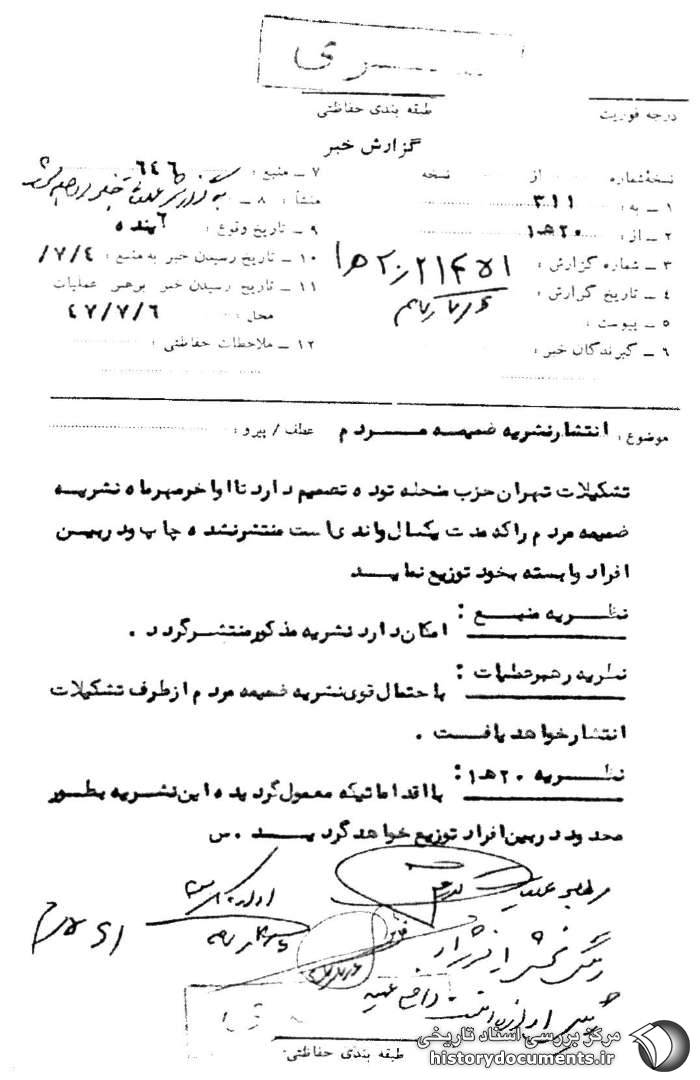 ســری
طبقه بندی حفاظتی
درجه فوریت
گزارش خبر
نسخهٔ شماره از نسخه
۱ ــ به : ۳۱۱
۲ ــ از : ۲۰هـ۱
۳ ــ شماره گزارش :
۴ ــ تاریخ گزارش :
۵ ــ پیوست :
۶ ــ گیرندگان خبر :
۷ ــ منبع : ۶۴۶
۸ ــ منشأ :
۹ ــ تاریخ وقوع : آینده
۱۰ ــ تاریخ رسیدن خبر به منبع : ۷/۴/
۱۱ ــ تاریخ رسیدن خبر برهبر عملیات
محل : ۴۷/۷/۶
۱۲ ــ ملاحظات حفاظتی :
موضوع : انتشارنشریه ضمیمه مــردم عطف / پیرو :
تشکیلات تهران حزب منحله توده تصمیم دارد تااواخرمهرماه نشریه
ضمیمه مردم راکه مدت یکسال واندی است منتشرنشده چاپ ودربین
افراد وابسته بخود توزیع نمایــد
نظــریه منبــع : امکان دارد نشریه مذکورمنتشرگردد .
نظریه رهبرعملیات : با احتمال قوی نشریه ضمیمه مردم ازطرف تشکیلات
انتشارخواهدیافــت .
نظــریه ۲۰هـ۱: بااقداماتیکه معمول گردیده این نشریه بطور
محدود دربین افراد توزیع خواهدگردیــد .س
رهبر عملیات
طبقه بندی حفاظتی
مرکز بررسی اسناد تاریخی
historydocuments.ir